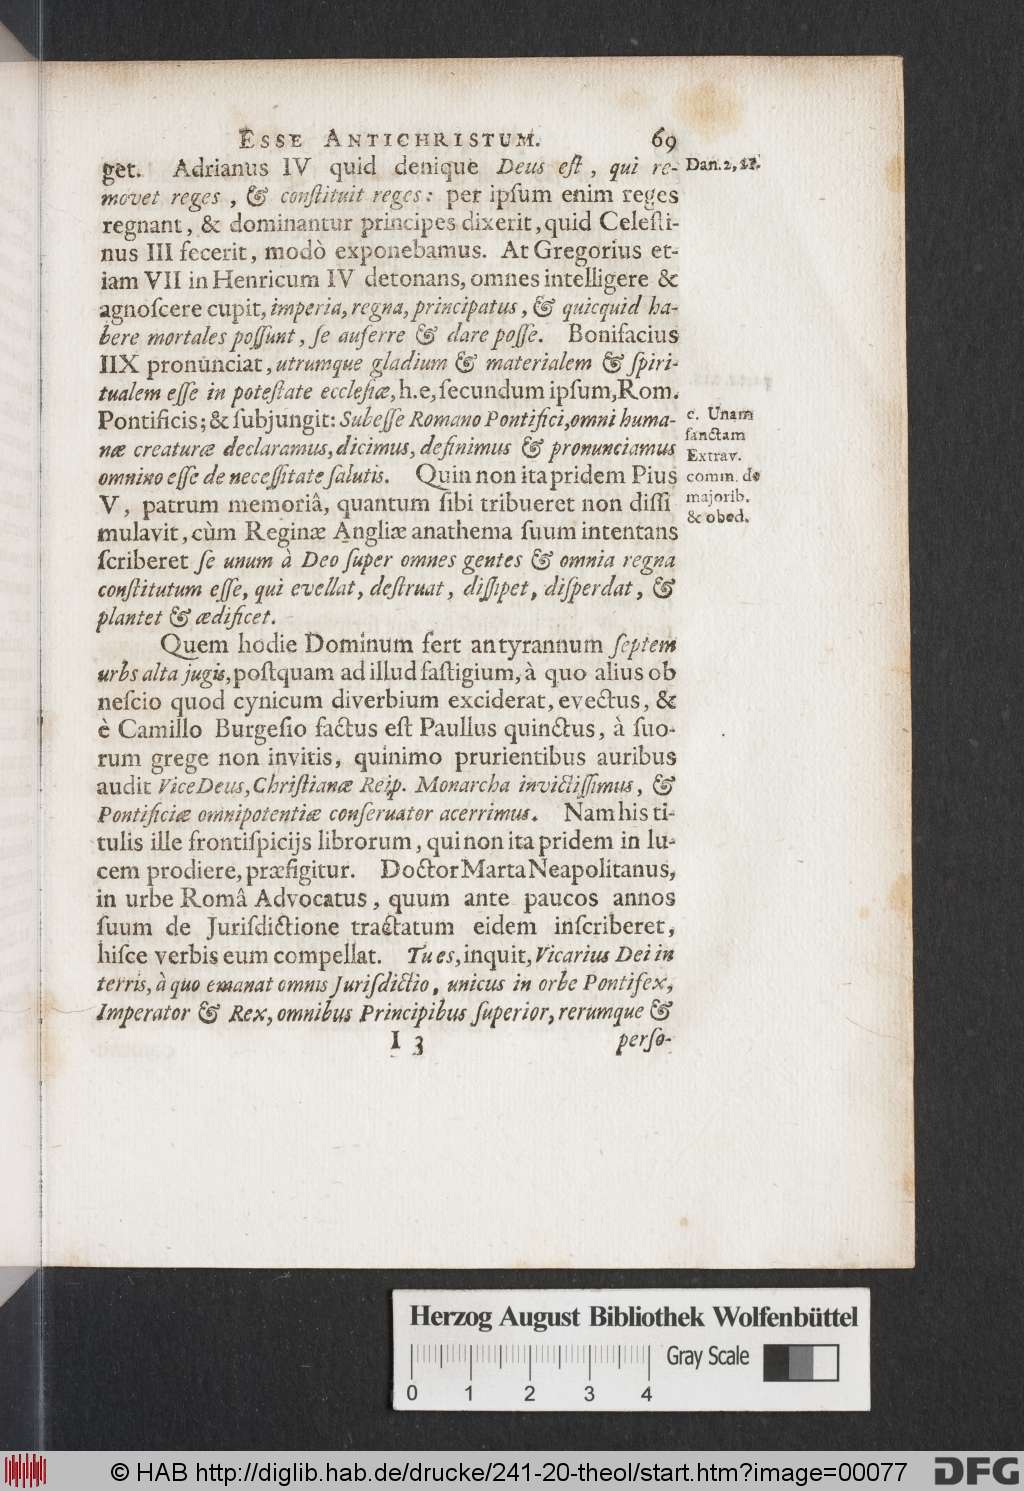 ESSE ANTICHRISTUM. 69
get. Adrianus IV quid denique Deus eſt, qui re-
movet reges, & conſtituit reges: per ipſum enim reges
regnant, & dominantur principes dixerit, quid Celeſti-
nus III fecerit, modò exponebamus. At Gregorius et-
iam VII in Henricum IV detonans, omnes intelligere &
agnoſcere cupit, imperia, regna, principatus, & quicquid ha-
bere mortales poſſunt, ſe auferre & dare poſſe. Bonifacius
IIX pronunciat, utrumque gladium & materialem & ſpiri-
tualem eſſe in poteſtate eccleſiæ, h.e, ſecundum ipſum, Rom.
Pontificis; & ſubjungit: Subeſſe Romano Pontifici, omni huma-
næ creaturæ declaramus, dicimus, definimus & pronunciamus
omnino eſſe de neceſſitate ſalutis. Quin non ita pridem Pius
V, patrum memoriâ, quantum ſibi tribueret non diſſi
mulavit, cùm Reginæ Angliæ anathema ſuum intentans
ſcriberet ſe unum à Deo ſuper omnes gentes & omnia regna
conſtitutum eſſe, qui evellat, deſtruat, diſſipet, diſperdat, &
plantet & ædificet.
Quem hodie Dominum fert an tyrannum ſeptem
urbs alta jugis, poſtquam ad illud faſtigium, à quo alius ob
neſcio quod cynicum diverbium exciderat, evectus, &
è Camillo Burgeſio factus eſt Paullus quinctus, à ſuo-
rum grege non invitis, quinimo prurientibus auribus
audit Vice Deus, Chriſtianæ Reip. Monarcha invictiſſimus, &
Pontificiæ omnipotentiæ conſervator acerrimus. Nam his ti-
tulis ille frontiſpicijs librorum, qui non ita pridem in lu-
cem prodiere, præfigitur. Doctor Marta Neapolitanus,
in urbe Româ Advocatus, quum ante paucos annos
ſuum de Jurisdictione tractatum eidem inſcriberet,
hiſce verbis eum compellat. Tu es, inquit, Vicarius Dei in
terris, à quo emanat omnis Jurisdictio, unicus in orbe Pontifex,
Imperator & Rex, omnibus Principibus ſuperior, rerumque &
I 3 perſo-
Dan. 2, 21.
c. Unam
ſanctam
Extrav.
comm. de
majorib.
& obed.
Herzog August Bibliothek Wolfenbüttel
0 1 2 3 4 Gray Scale
© HAB http://diglib.hab.de/drucke/241-20-theol/start.htm?image=00077
DFG